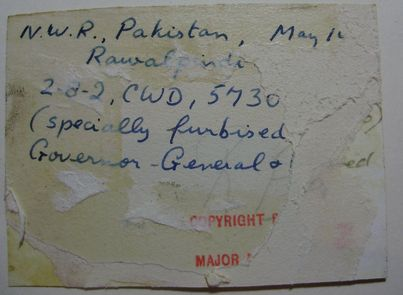 N.W.R., Pakistan, May
Rawalpindi
2-8-2, CWD, 5730
(specially furbised
Governor-General
COPYRIGHT
MAJOR